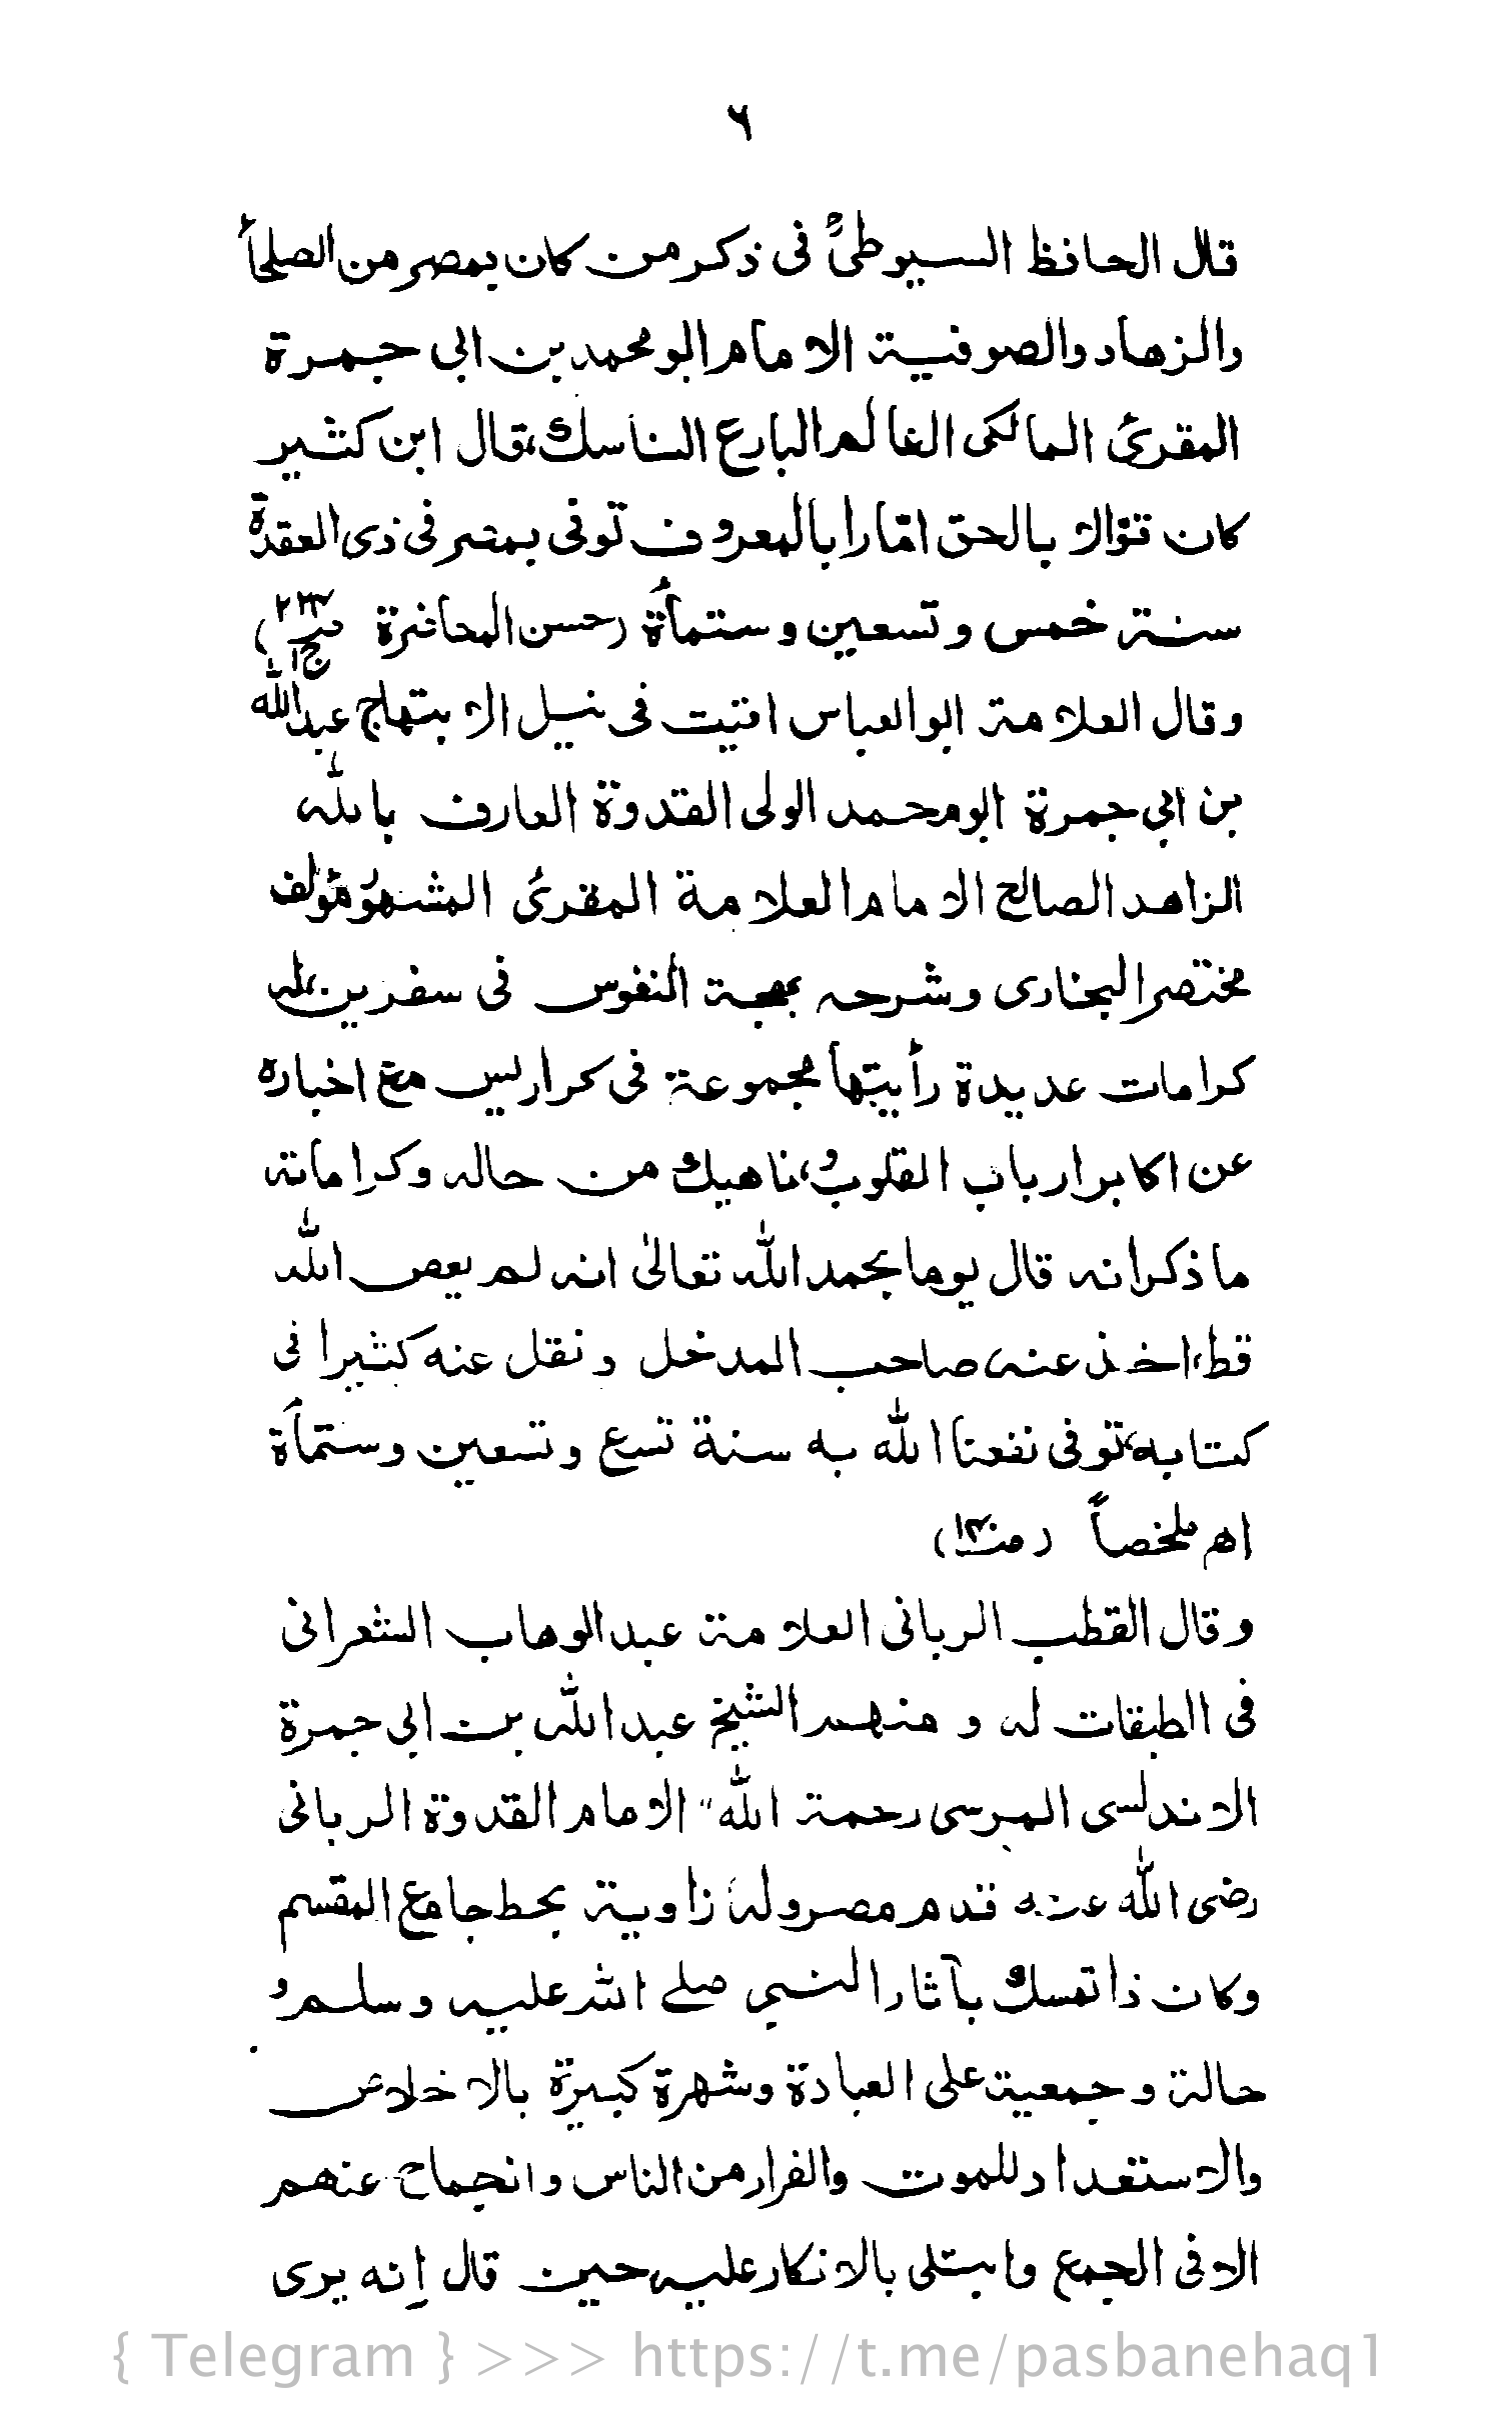 ٦
قال الحافظ السيوطیؒ فی ذكر من كان بمصر من الصلحأ
والزهاد والصوفية الامام ابو محمد بن ابی جمرة
المقرئ المالكی العالم البارع الناسك، قال ابن كثير
كان قوّالا بالحق امّارا بالمعروف توفی بمصر فی ذی العقدة
سنة خمس و تسعين و ستمأة (حسن المحاضرة ج۱)
وقال العلامة ابو العباس افتيت فی نيل الابتهاج عبدالله
بن ابی جمرة ابو محمد الولی القدوة العارف بالله
الزاهد الصالح الامام العلامة المقرئ المشهور مؤلف
مختصر البخاری وشرحه بهجة النفوس فی سفرين، له
كرامات عديدة رأيتها مجموعة فی كراريس مع اخباره
عن اكابر ارباب القلوب، ناهيك من حاله وكراماته
ما ذكر انه قال يوما بحمد الله تعالیٰ انه لم يعص الله
قط، اخذ عنه صاحب المدخل و نقل عنه كثيرا فی
كتابه، توفی نفعنا الله به سنة تسع وتسعين وستمأة
اهـ ملخصاً
وقال القطب الربانی العلامة عبد الوهاب الشعرانی
فی الطبقات له و منهم الشيخ عبد الله بن ابی جمرة
الاندلسی المرسی رحمة الله" الامام القدوة الربانی
رضی الله عنه قدم مصر وله زاوية بخط جامع المقسم
وكان ذا تمسك بآثار النبی صلے الله عليه وسلم و
حالة و جمعية علی العبادة وشهرة كبيرة بالاخلاص
والاستعداد للموت والفرار من الناس وانجماح عنهم
الا فی الجمع وابتلی بالانكار عليه حين قال إنه يری
{ Telegram } >>> https://t.me/pasbanehaq1